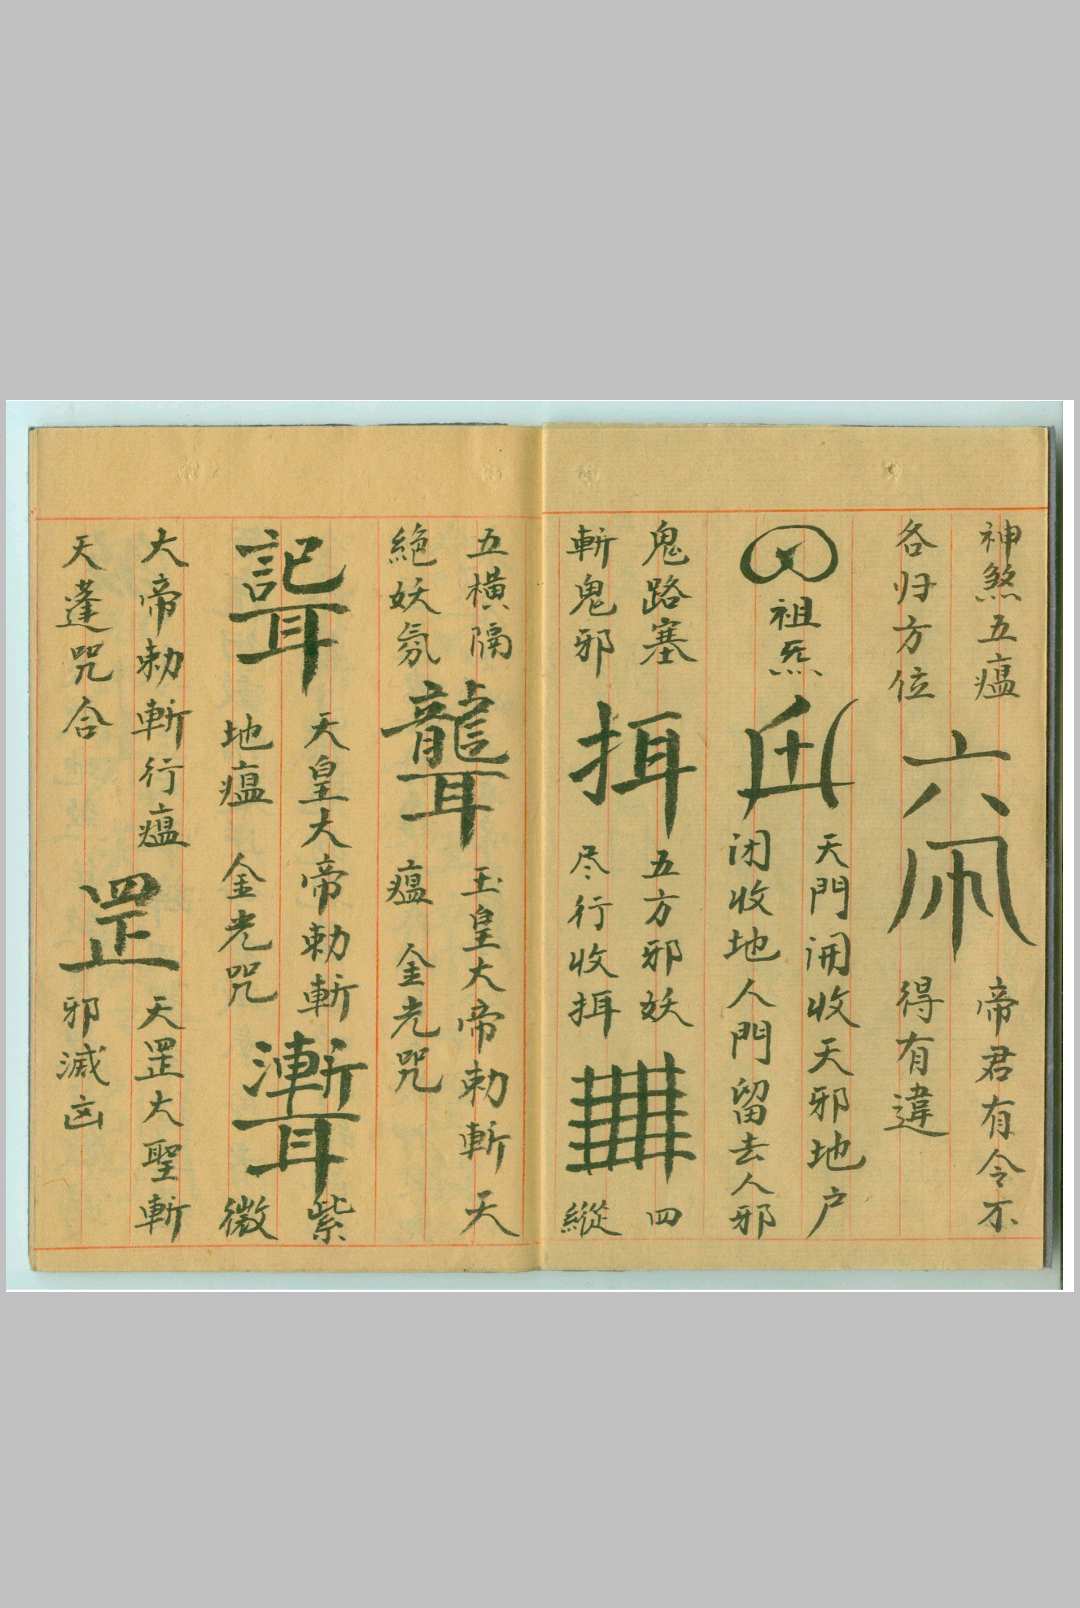 神煞五瘟
各归方位
六
帝君有令不
得有違
祖炁
天門開收天邪地户
闭收地人門留去人邪
鬼路塞
斬鬼邪
挕
五方邪妖
尽行收挕
四
縱
五横隔
絶妖氛
玉皇大帝勅斬天
瘟 金光咒
天皇大帝勅斬
地瘟 金光咒
紫
微
大帝勅斬行瘟
天蓬咒合
罡
天罡大聖斬
邪滅凶